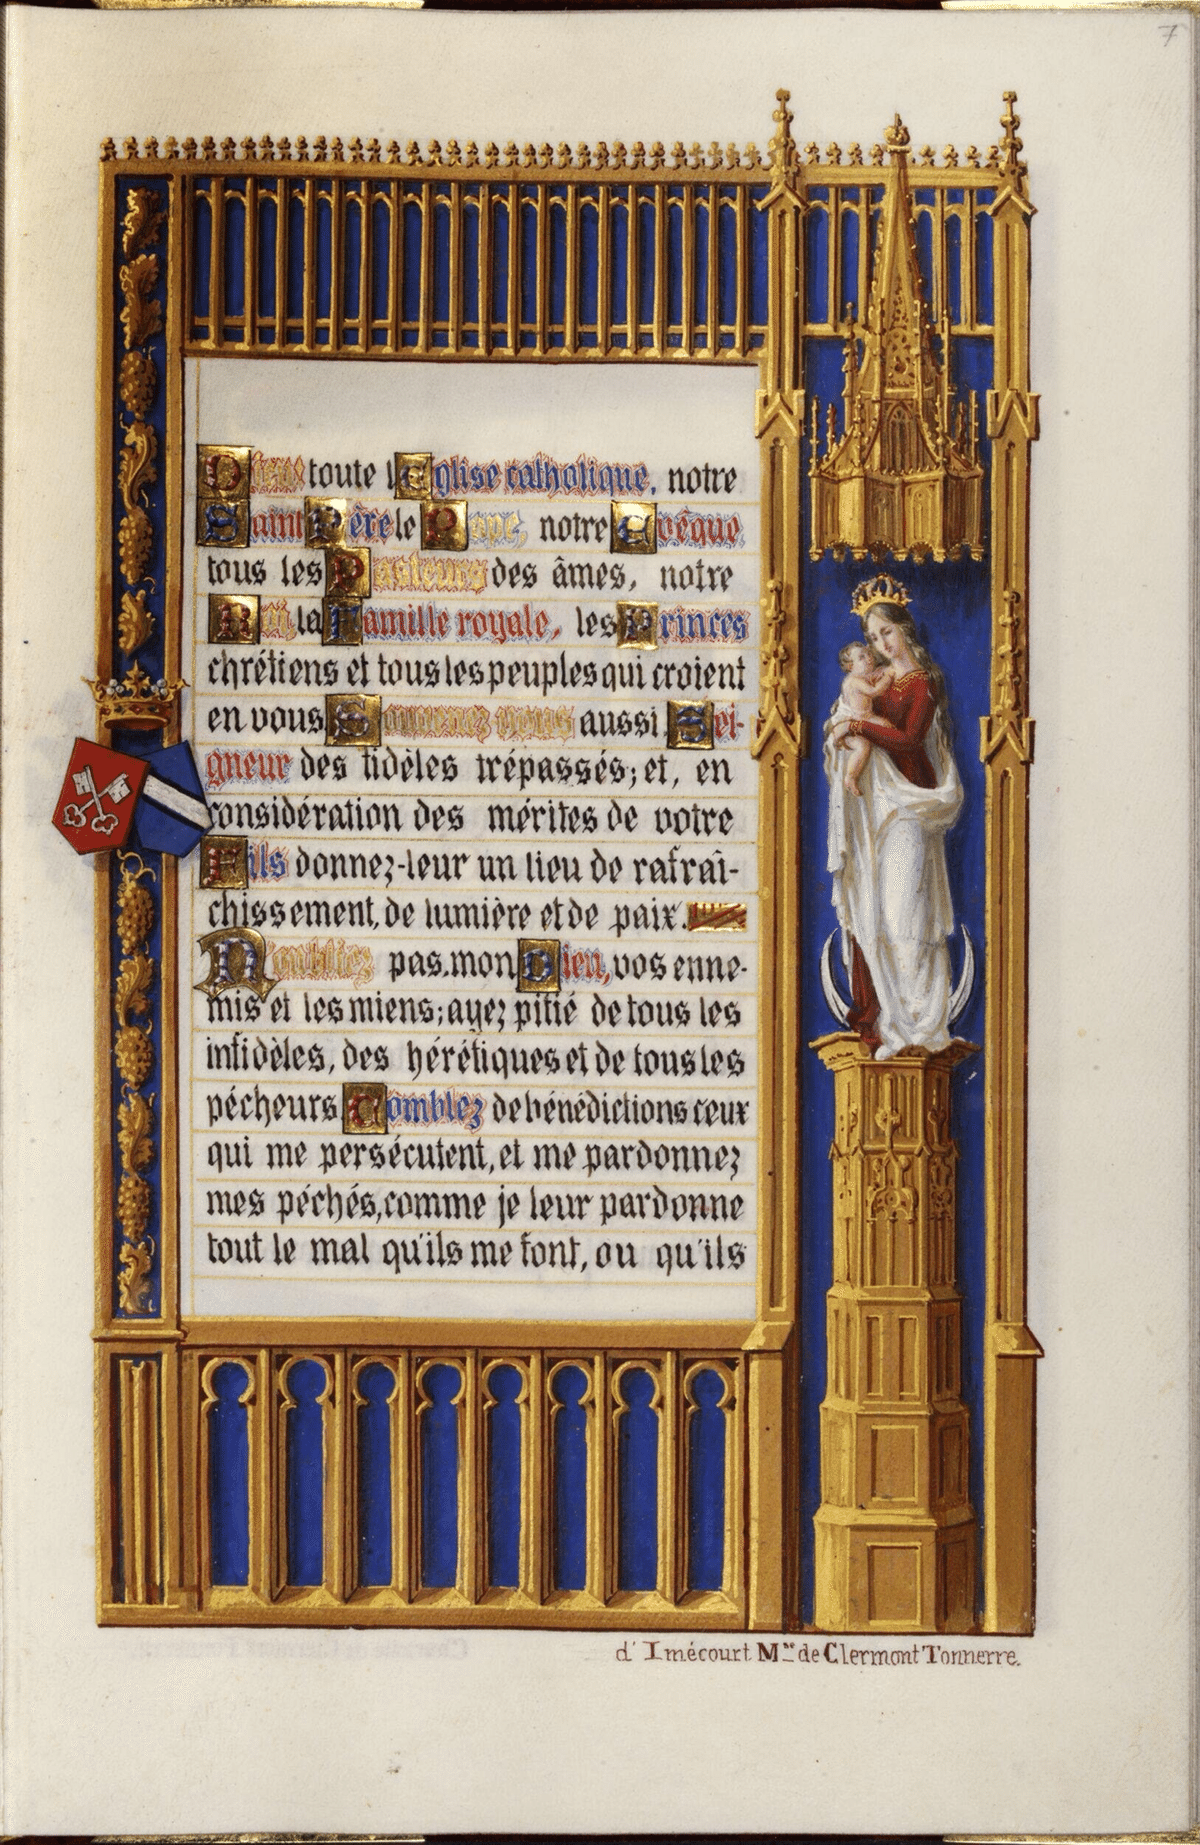 7
Dieu! toute l'Eglise catholique, notre
Saint Père le Pape, notre Evéque
tous les Pasteurs des âmes, notre
Roi, la Famille royale, les Princes
chrétiens et tous les peuples qui croient
en vous Souvenez vous aussi, Sei-
gneur des fidèles trépassés; et, en
considération des mérites de votre
Fils donnez-leur un lieu de rafraî-
chissement, de lumière et de paix.
N'oubliez pas, mon Dieu, vos enne-
mis et les miens; ayez pitié de tous les
infidèles, des hérétiques et de tous les
pécheurs Comblez de bénédictions ceux
qui me persécutent, et me pardonnez
mes péchés, comme je leur pardonne
tout le mal qu'ils me font, ou qu'ils
d'Imécourt Mse de Clermont Tonnerre.